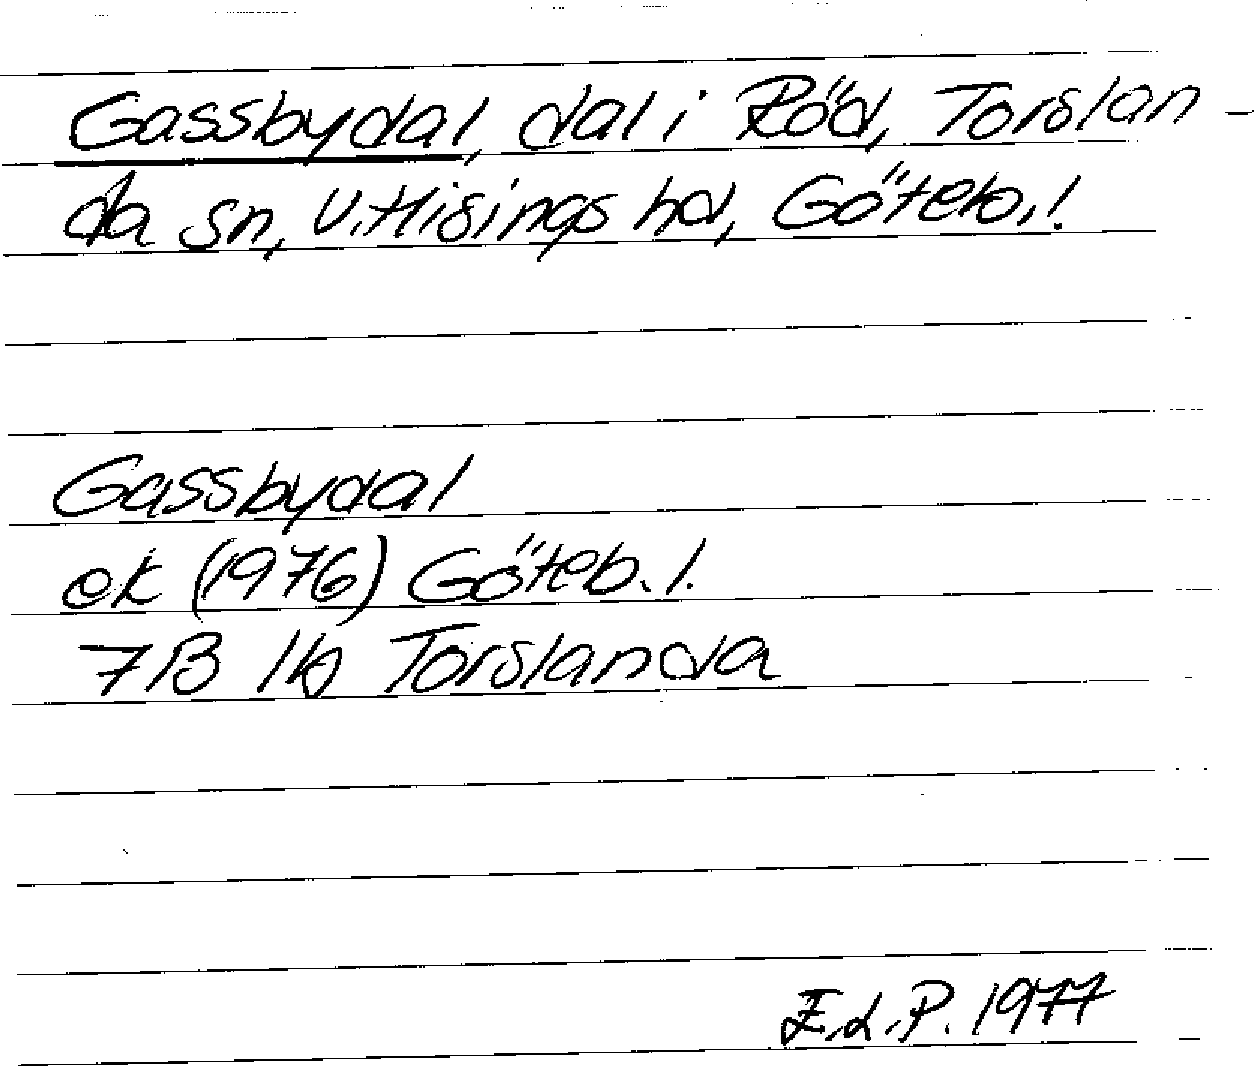 Gassbydal, dal i Röd, Torslan-
da sn, V. Hisings hd, Göteb. l.
Gassbydal
ek (1976) Göteb. l.
7B 1b Torslanda
E.L.P. 1977